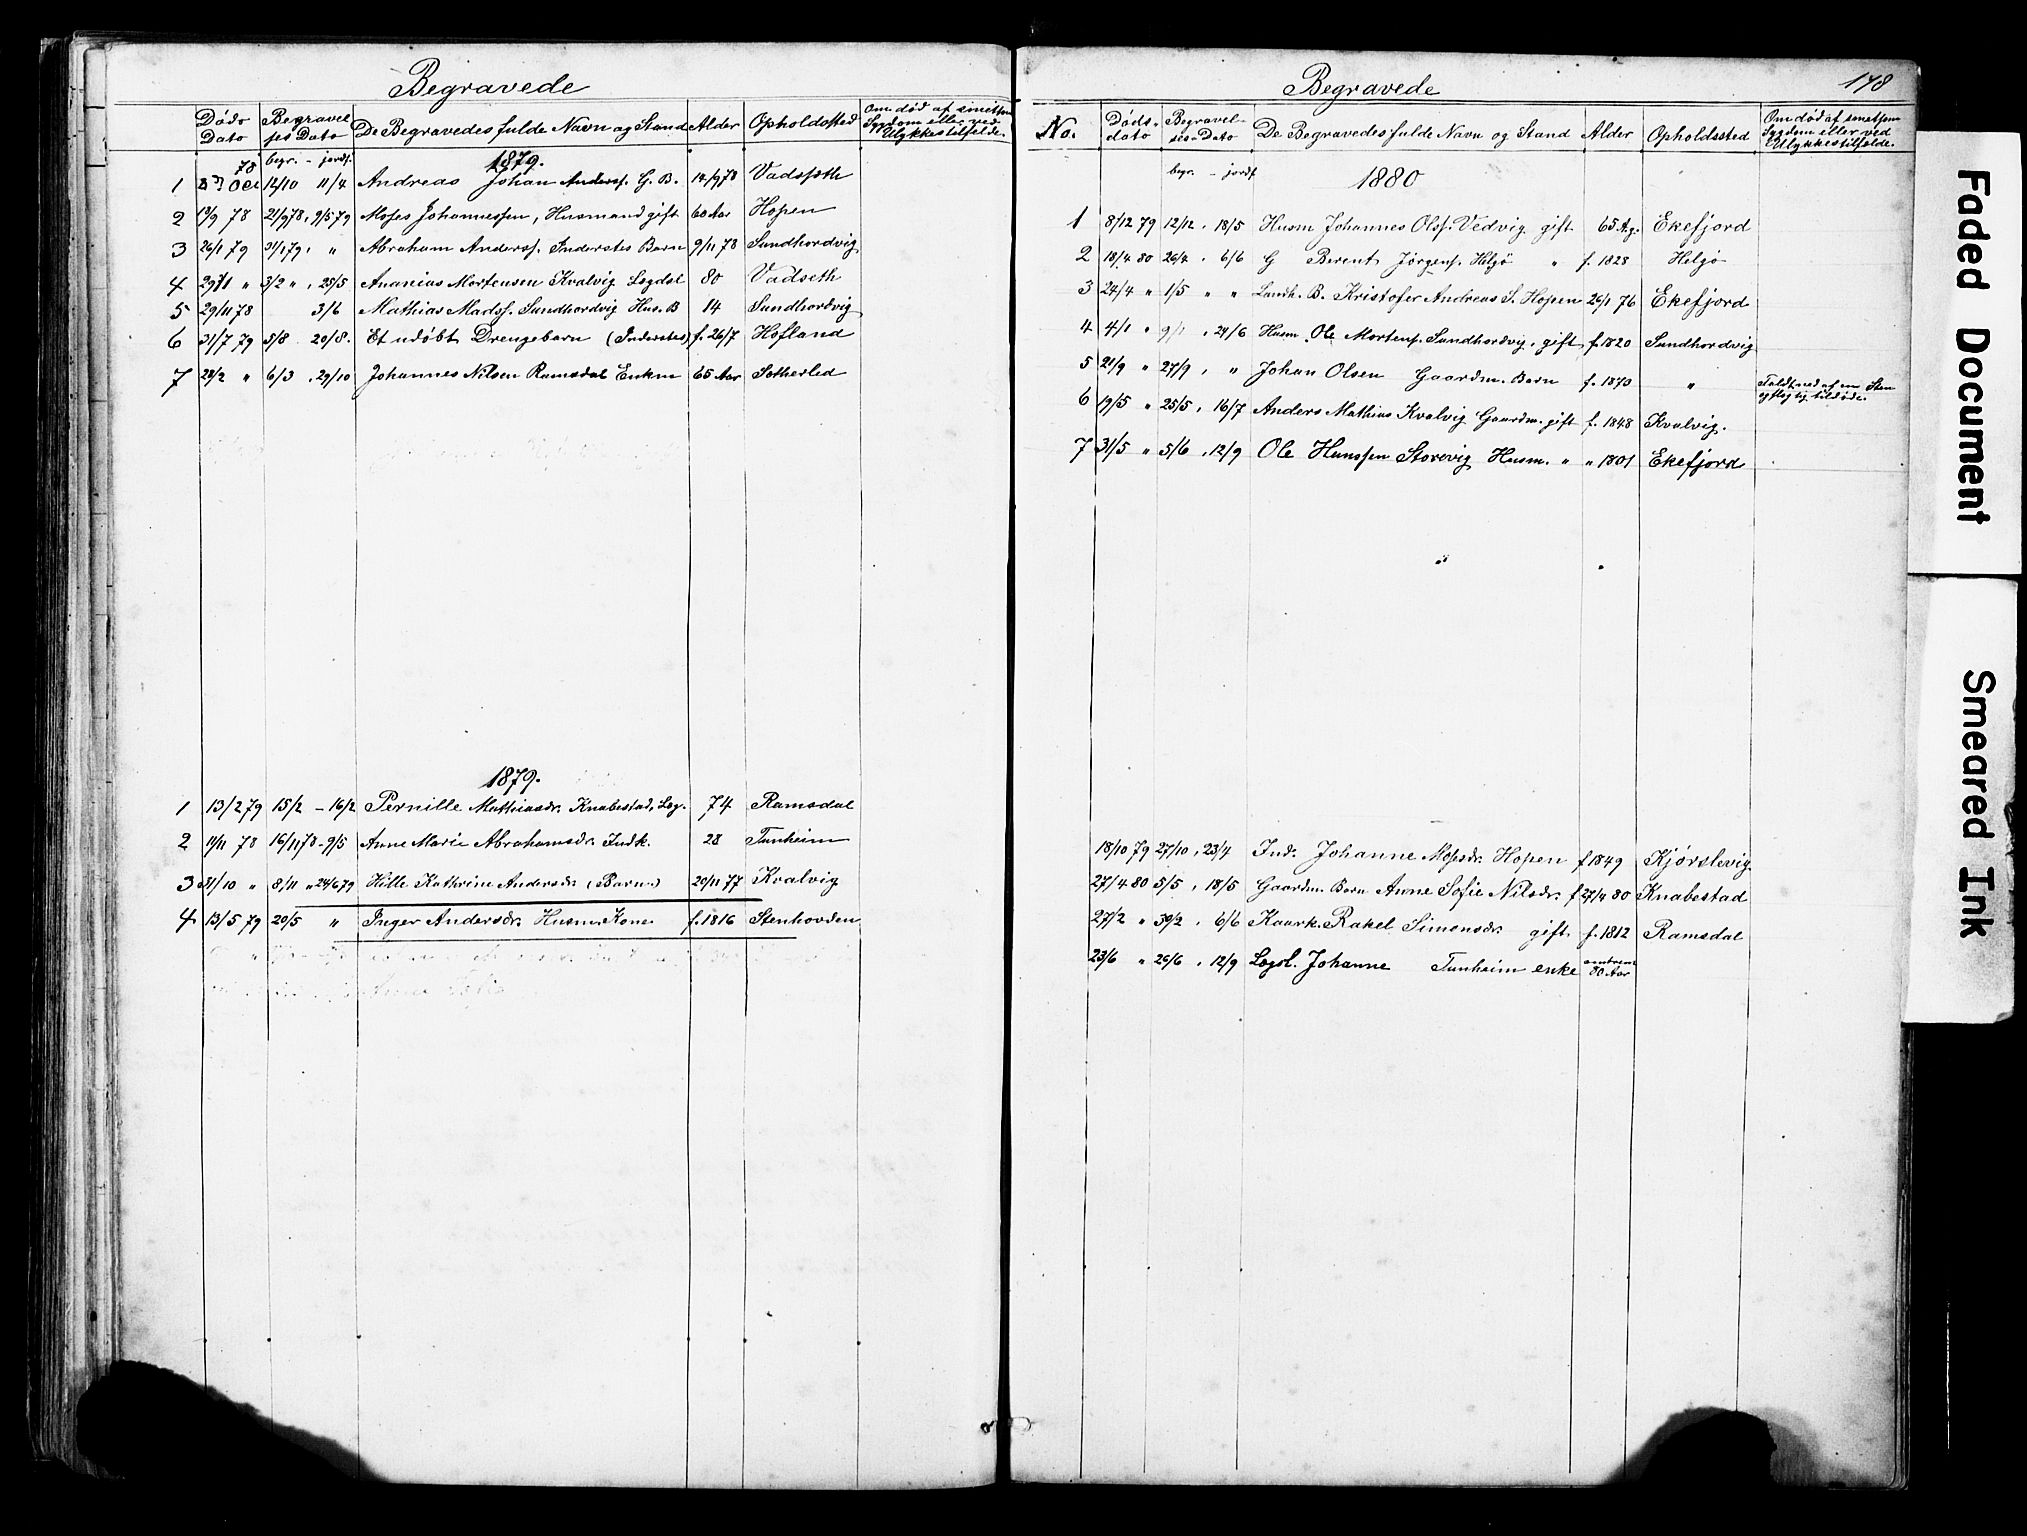 Begravede
Døds Dato | Begravelses Dato | De Begravedes fulde Navn og Stand | Alder | Opholdssted | Om død af smitsom Sygdom eller ved Ulykkestilfelde.
78 begr. - jordf. 1879.
1 Oct 12/10 11/4 Andreas Johan Andersf. G. B. 14/9 78 Vadsæth
2 13/9 78 21/9 78, 9/5 79 Moses Johannessen, Husmand gift 60 Aar Hopen
3 26/1 79 31/1 79, " Abraham Andersf. Inderstes Barn 9/11 78 Sundhordvig
4 29/1 " 3/2 ", 25/5 Ananias Mortensen Kvalvig Legdsl 80 Vadseth
5 29/11 78 3/6 Mathias Madsf. Sundhordvig Hus. B 14 Sundhordvig
6 31/7 79 5/8 20/8. Et udøbt Drengebarn (Inderstes) f. 26/7 Hofland
7 28/2 " 6/3, 29/10 Johannes Nilsen Ramsdal Enkm 65 Aar Sætherled
1879.
1 13/2 79 15/2 - 16/2 Pernille Mathiasdr. Knabestad, Leg. 74 Ramsdal
2 11/11 78 16/11 78 - 9/5 Anne Marie Abrahamsdr. Indk. 28 Tunheim
3 31/10 " 8/11 " 24/6 79 Hille Kathrine Andersdr (Barn.) 20/11 77 Kvalvig
4 13/5 79 20/5 " Inger Andersdr. Husm. Kone f. 1816 Stenhovden
Begravede 178
No. | Døds-dato | Begravelses-Dato | De Begravedes fulde Navn og Stand | Alder | Opholdssted | Om død af smitsom Sygdom eller ved Ulykkestilfelde.
begr. - jordf. 1880
1 8/12 79 12/12, 18/5 Husm Johannes Olsf. Vedvig gift 65 A.g. Ekefjord
2 18/4 80 26/4, 6/6 G Berent Jørgensf. Helgø " f. 1828 Helgø
3 24/4 " 1/5 " " Landh. B. Kristofer Andreas S. Hopen 26/1 76 Ekefjord
4 4/1 " 9/1, 24/6 Husm Ole Mortensf. Sundhordvig, gift f. 1820 Sundhordvig
5 21/9 " 27/9, " Johan Olsen Gaardm. Barn f. 1873 " Faldt ned af en Sten og slog sig tildøde.
6 19/5 " 25/5, 16/7 Anders Mathias Kvalvig Gaardm. gift f. 1848 Kvalvig.
7 31/5 " 5/6, 12/9 Ole Hanssen Storevig Husm. " " 1801 Ekefjord
18/10 79 27/10, 23/4 Ind. Johanne Mosesdr. Hopen f 1849 Kjørslevig
27/4 80 5/5, 18/5 Gaardm. Barn Anne Sofie Nilsdr. f 27/4 80 Knabestad
27/2 " 30/2, 6/6 Kaark. Rakel Simonsdr. gift f. 1812 Ramsdal
23/6 " 26/6, 12/9 Legsl. Johanne Tunheim enke omtrent 80 Aar
Faded Document
Smeared Ink